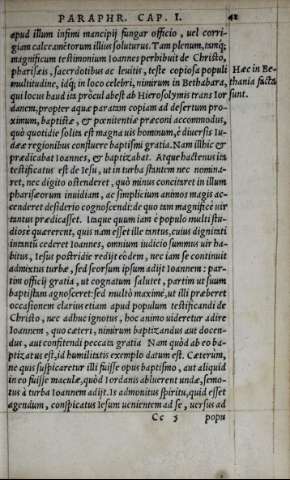 PARAPHR. CAP. I. 41
apud illum infimi mancipij fungar officio, uel corri-
giam calceamētorum illius soluturus. Tam plenum, tanq́;
magnificum testimonium Ioannes perhibuit de Christo,
pharisæis, sacerdotibus ac leuitis, teste copiosa populi
multitudine, idq́; in loco celebri, nimirum in Bethabara,
qui locus haud ita procul abest ab Hierosolymis trans Ior
danem, propter aquæ paratam copiam ad desertum pro-
ximum, baptistæ, & pœnitentiæ præconi accommodus,
quò quotidie solita est magna uis hominum, è diuersis Iu-
dææ regionibus confluere baptismi gratia. Nam illhic &
prædicabat Ioannes, & baptizabat. Atque hactenus ita
testificatus est de Iesu, ut in turba stantem nec nomina-
ret, nec digito ostenderet, quò minus concitaret in illum
pharisæorum inuidiam, ac simplicium animos magis ac-
cenderet desiderio cognoscendi: de quo tam magnificè uir
tantus prædicasset. Itaque quum iam è populo multi stu-
diosè quærerent, quis nam esset ille tantus, cuius dignitati
intantū cederet Ioannes, omnium iudicio summus uir ha-
bitus, Iesus postridie redijt eòdem, nec iam se continuit
admixtus turbæ, sed seorsum ipsum adijt Ioannem: par-
tim officij gratia, ut cognatum salutet, partim ut suum
baptistam agnosceret: sed multò maximè, ut illi præberet
occasionem clarius etiam apud populum testificandi de
Christo, nec adhuc ignotus, hoc animo uideretur adire
Ioannem, quo cæteri, nimirum baptizandus aut docen-
dus, aut confitendi peccata gratia Nam quòd ab eo ba-
ptizatus est, id humilitatis exemplo datum est. Cæterum,
ne quis suspicaretur illi fuisse opus baptismo, aut aliquid
in eo fuisse maculæ, quòd Iordanis abluerent undæ, semo-
tus à turba Ioannem adijt. Is admonitus spiritu, quid esset
agendum, conspicatus Iesum uenientem ad se, uersus ad
Cc 5 popu
Hæc in Be-
thania facta
sunt.